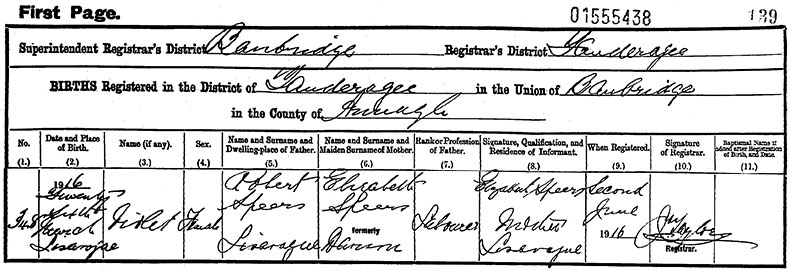 First Page. 01555438 139
Superintendent Registrar's District Banbridge Registrar's District Tanderagee
BIRTHS Registered in the District of Tanderagee in the Union of Banbridge
in the County of Armagh
No. Date and Place of Birth. Name (if any). Sex. Name and Surname and Dwelling-place of Father. Name and Surname and Maiden Surname of Mother. Rank or Profession of Father. Signature, Qualification, and Residence of Informant. When Registered. Signature of Registrar. Baptismal Name if added after Registration of Birth, and Date.
(1.) (2.) (3.) (4.) (5.) (6.) (7.) (8.) (9.) (10.) (11.)
1916 Robert Elizabeth Elizabeth Speers Second
Twenty Speers Speers June
March Violet Female formerly Labourer Mother 1916
Lisavague Lisavague Lisavague Registrar.